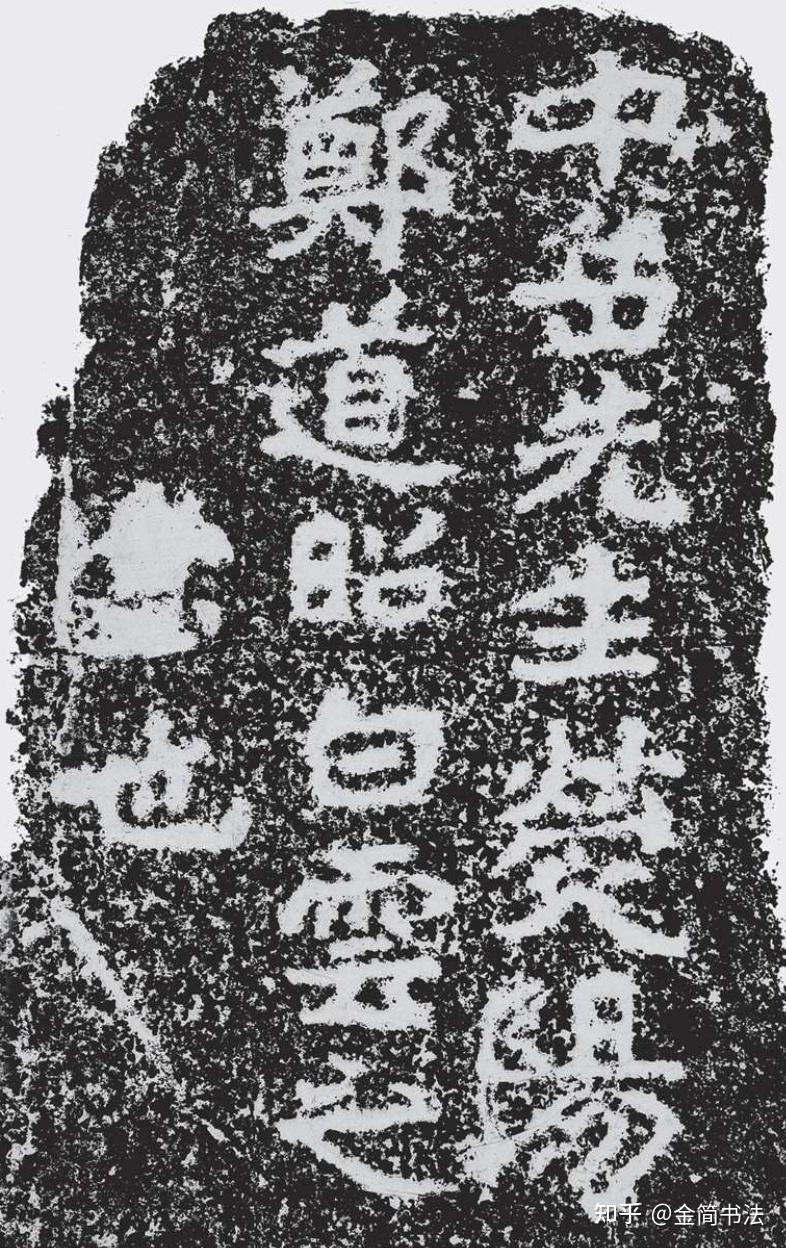 中岳先生熒陽
鄭道昭白雲之
也
知乎 @金简书法